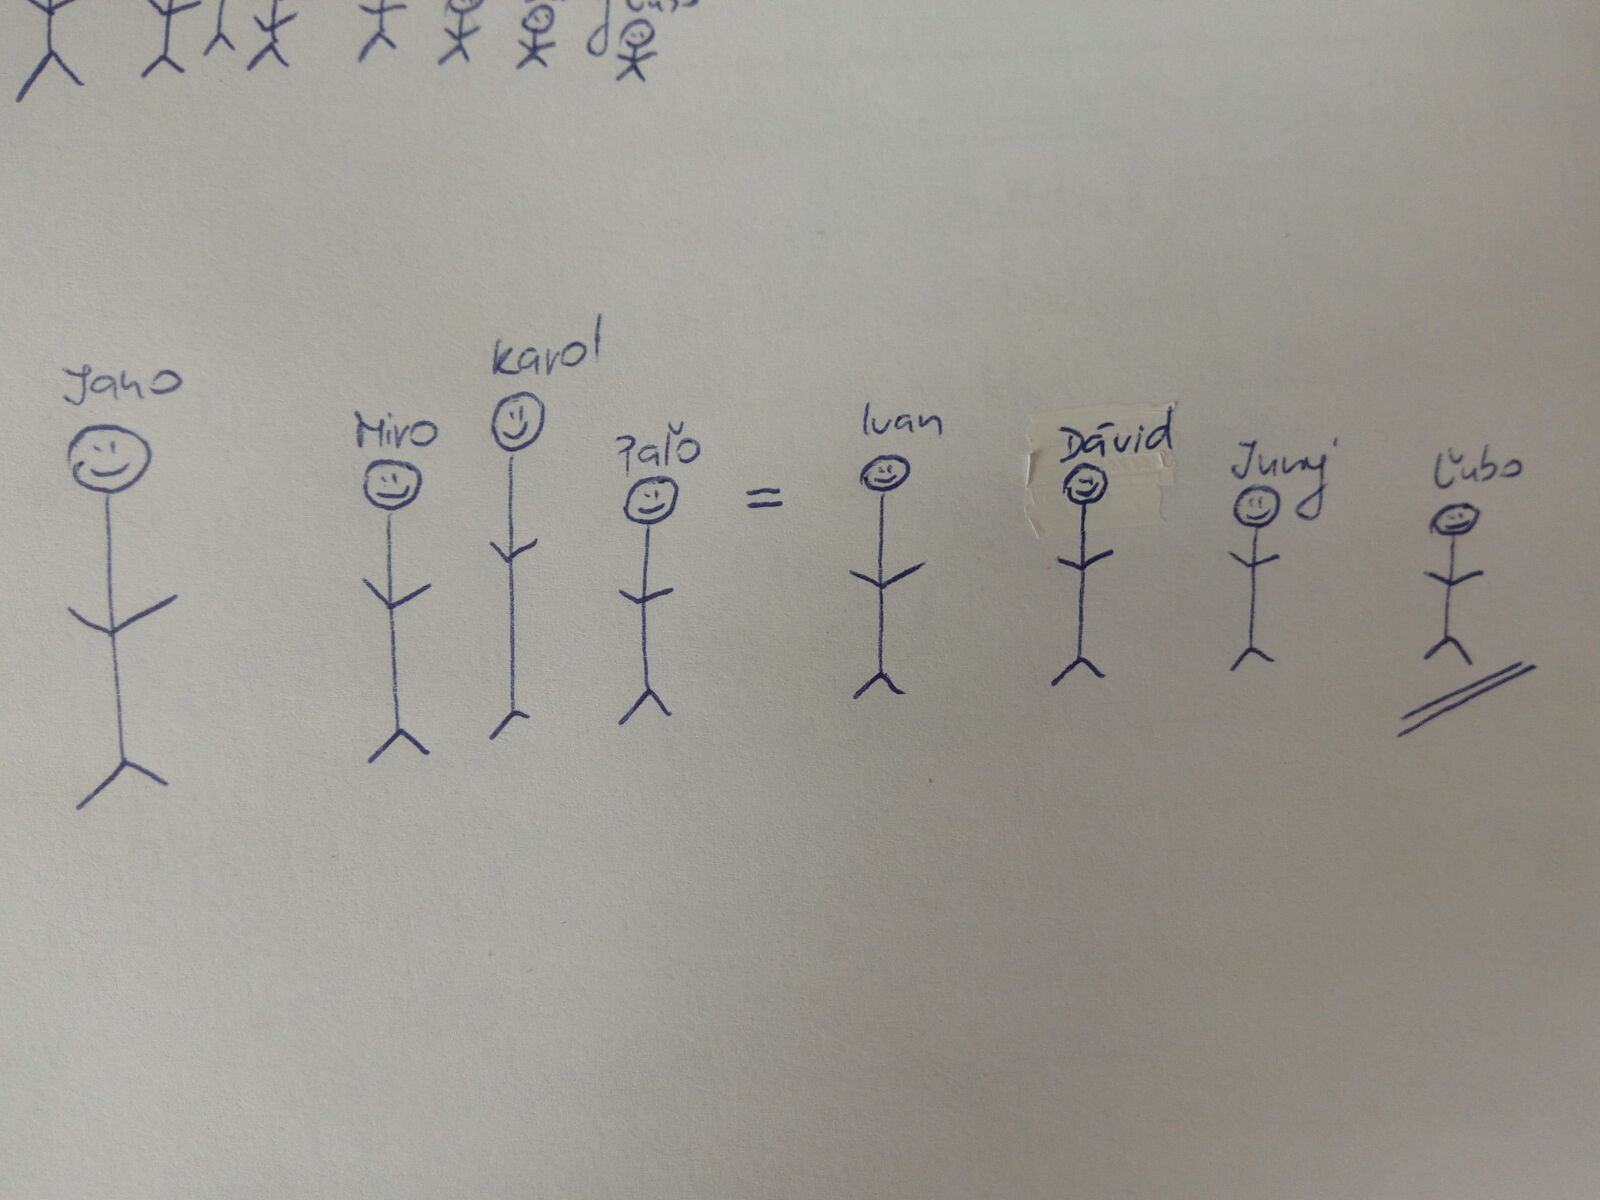 Jano
Miro
Karol
Paľo
=
Ivan
Dávid
Juraj
Ľubo